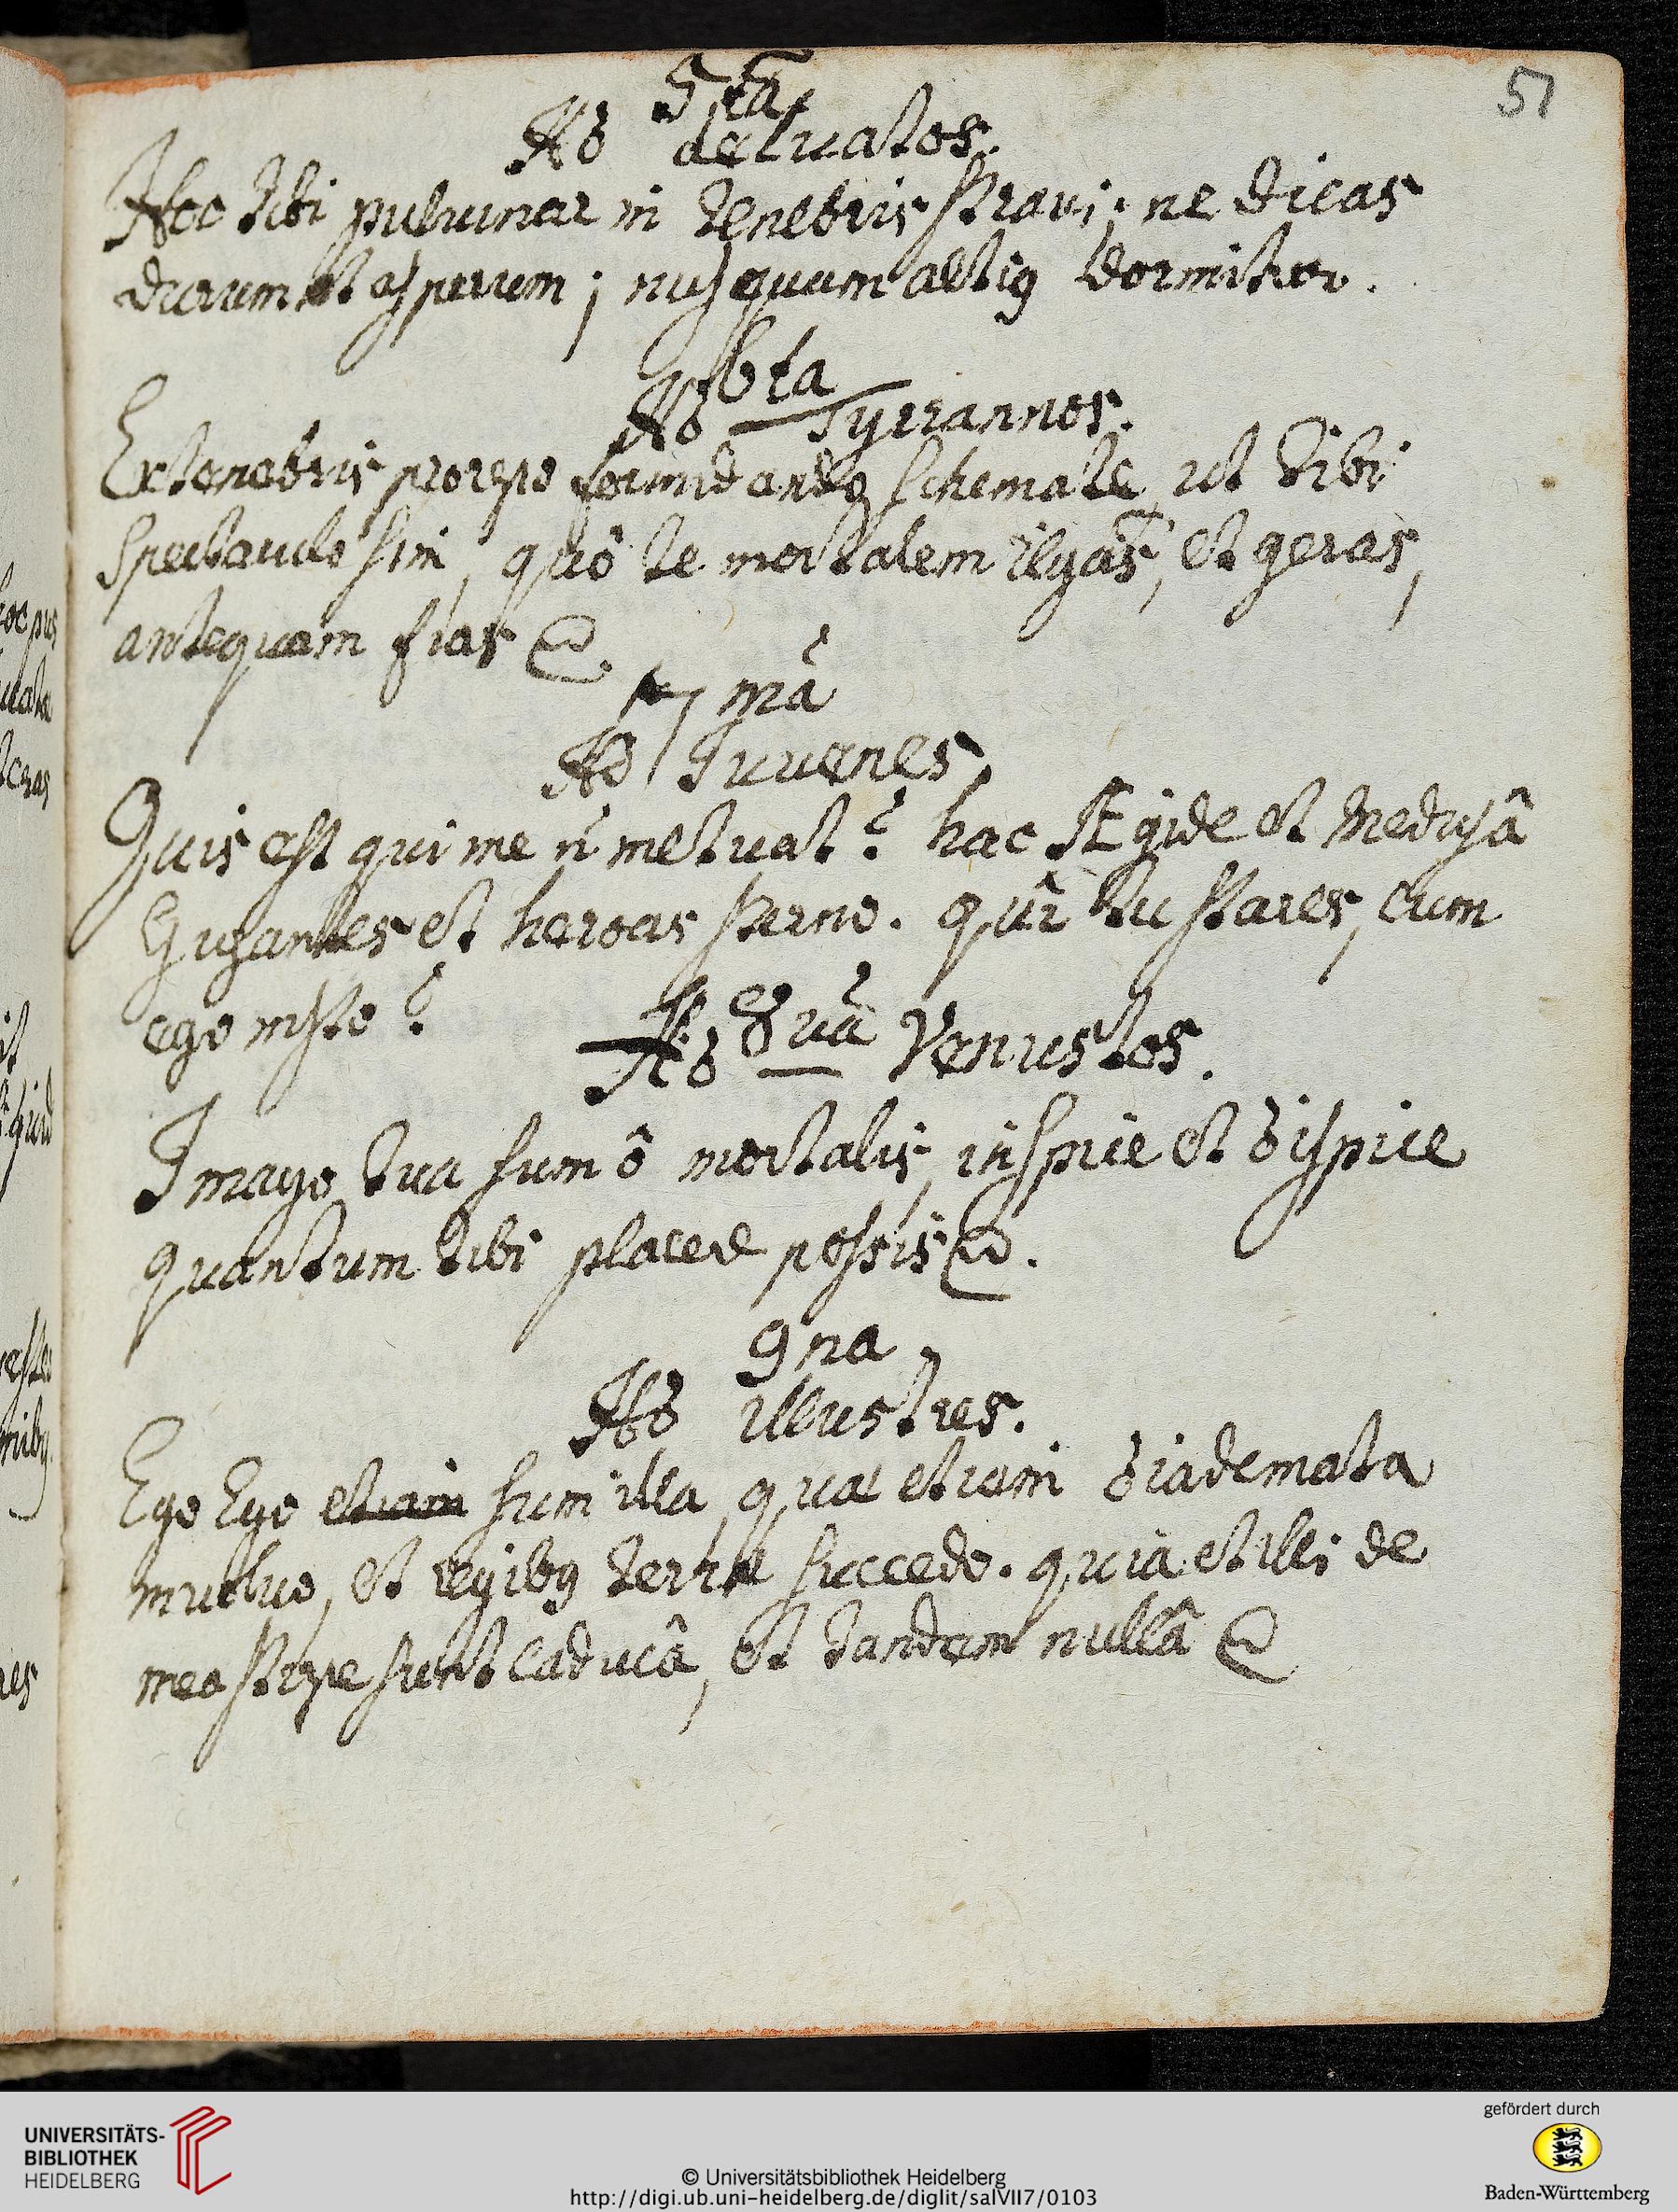 51
5ta
Ad delicatos.
Hoc tibi pulvinar in tenebris stravi; ne dicas
durum et asperum; nusquam altiq dormitur.
6ta
Ad Tyrannos.
Ex tenebris prorepo formidando schemate, ut tibi
spectaculo sim, quô te mortalem regas, et geras,
antequam fias
7 mâ
Ad Iuvenes,
Quis est qui me n̄ metuat? hac Ægide et Medusâ
Gigantes et heroas sterno. qui tu stares, cum
ego insto?
8 vâ
Ad Venustos.
Imago tua sum ô mortalis, inspice et dispice
quantum tibi placere possis
9 na
Ad illustres.
Ego Ego etiam sum illa, quæ etiam diademata
mutuo, et regibq terræ succedo. quia et illi de
mea stirpe sunt caducâ, et tandem nullâ
UNIVERSITÄTS-
BIBLIOTHEK
HEIDELBERG
© Universitätsbibliothek Heidelberg
http://digi.ub.uni-heidelberg.de/diglit/salVII7/0103
gefördert durch
Baden-Württemberg